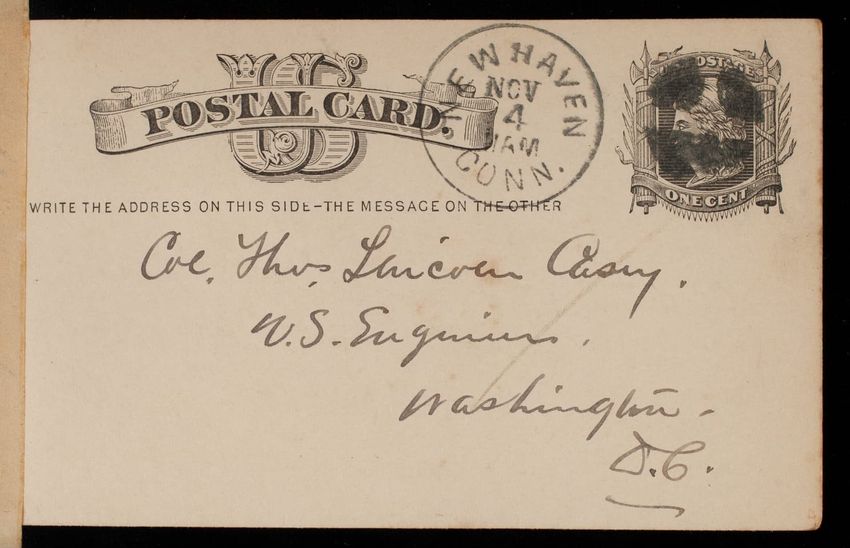 US
POSTAL CARD.
NEW HAVEN
NOV
4
AM
CONN.
U.S. POSTAGE
ONE CENT
WRITE THE ADDRESS ON THIS SIDE-THE MESSAGE ON THE OTHER
Col. Thos Lincoln Casey.
U.S. Engineers.
Washington-
D.C.